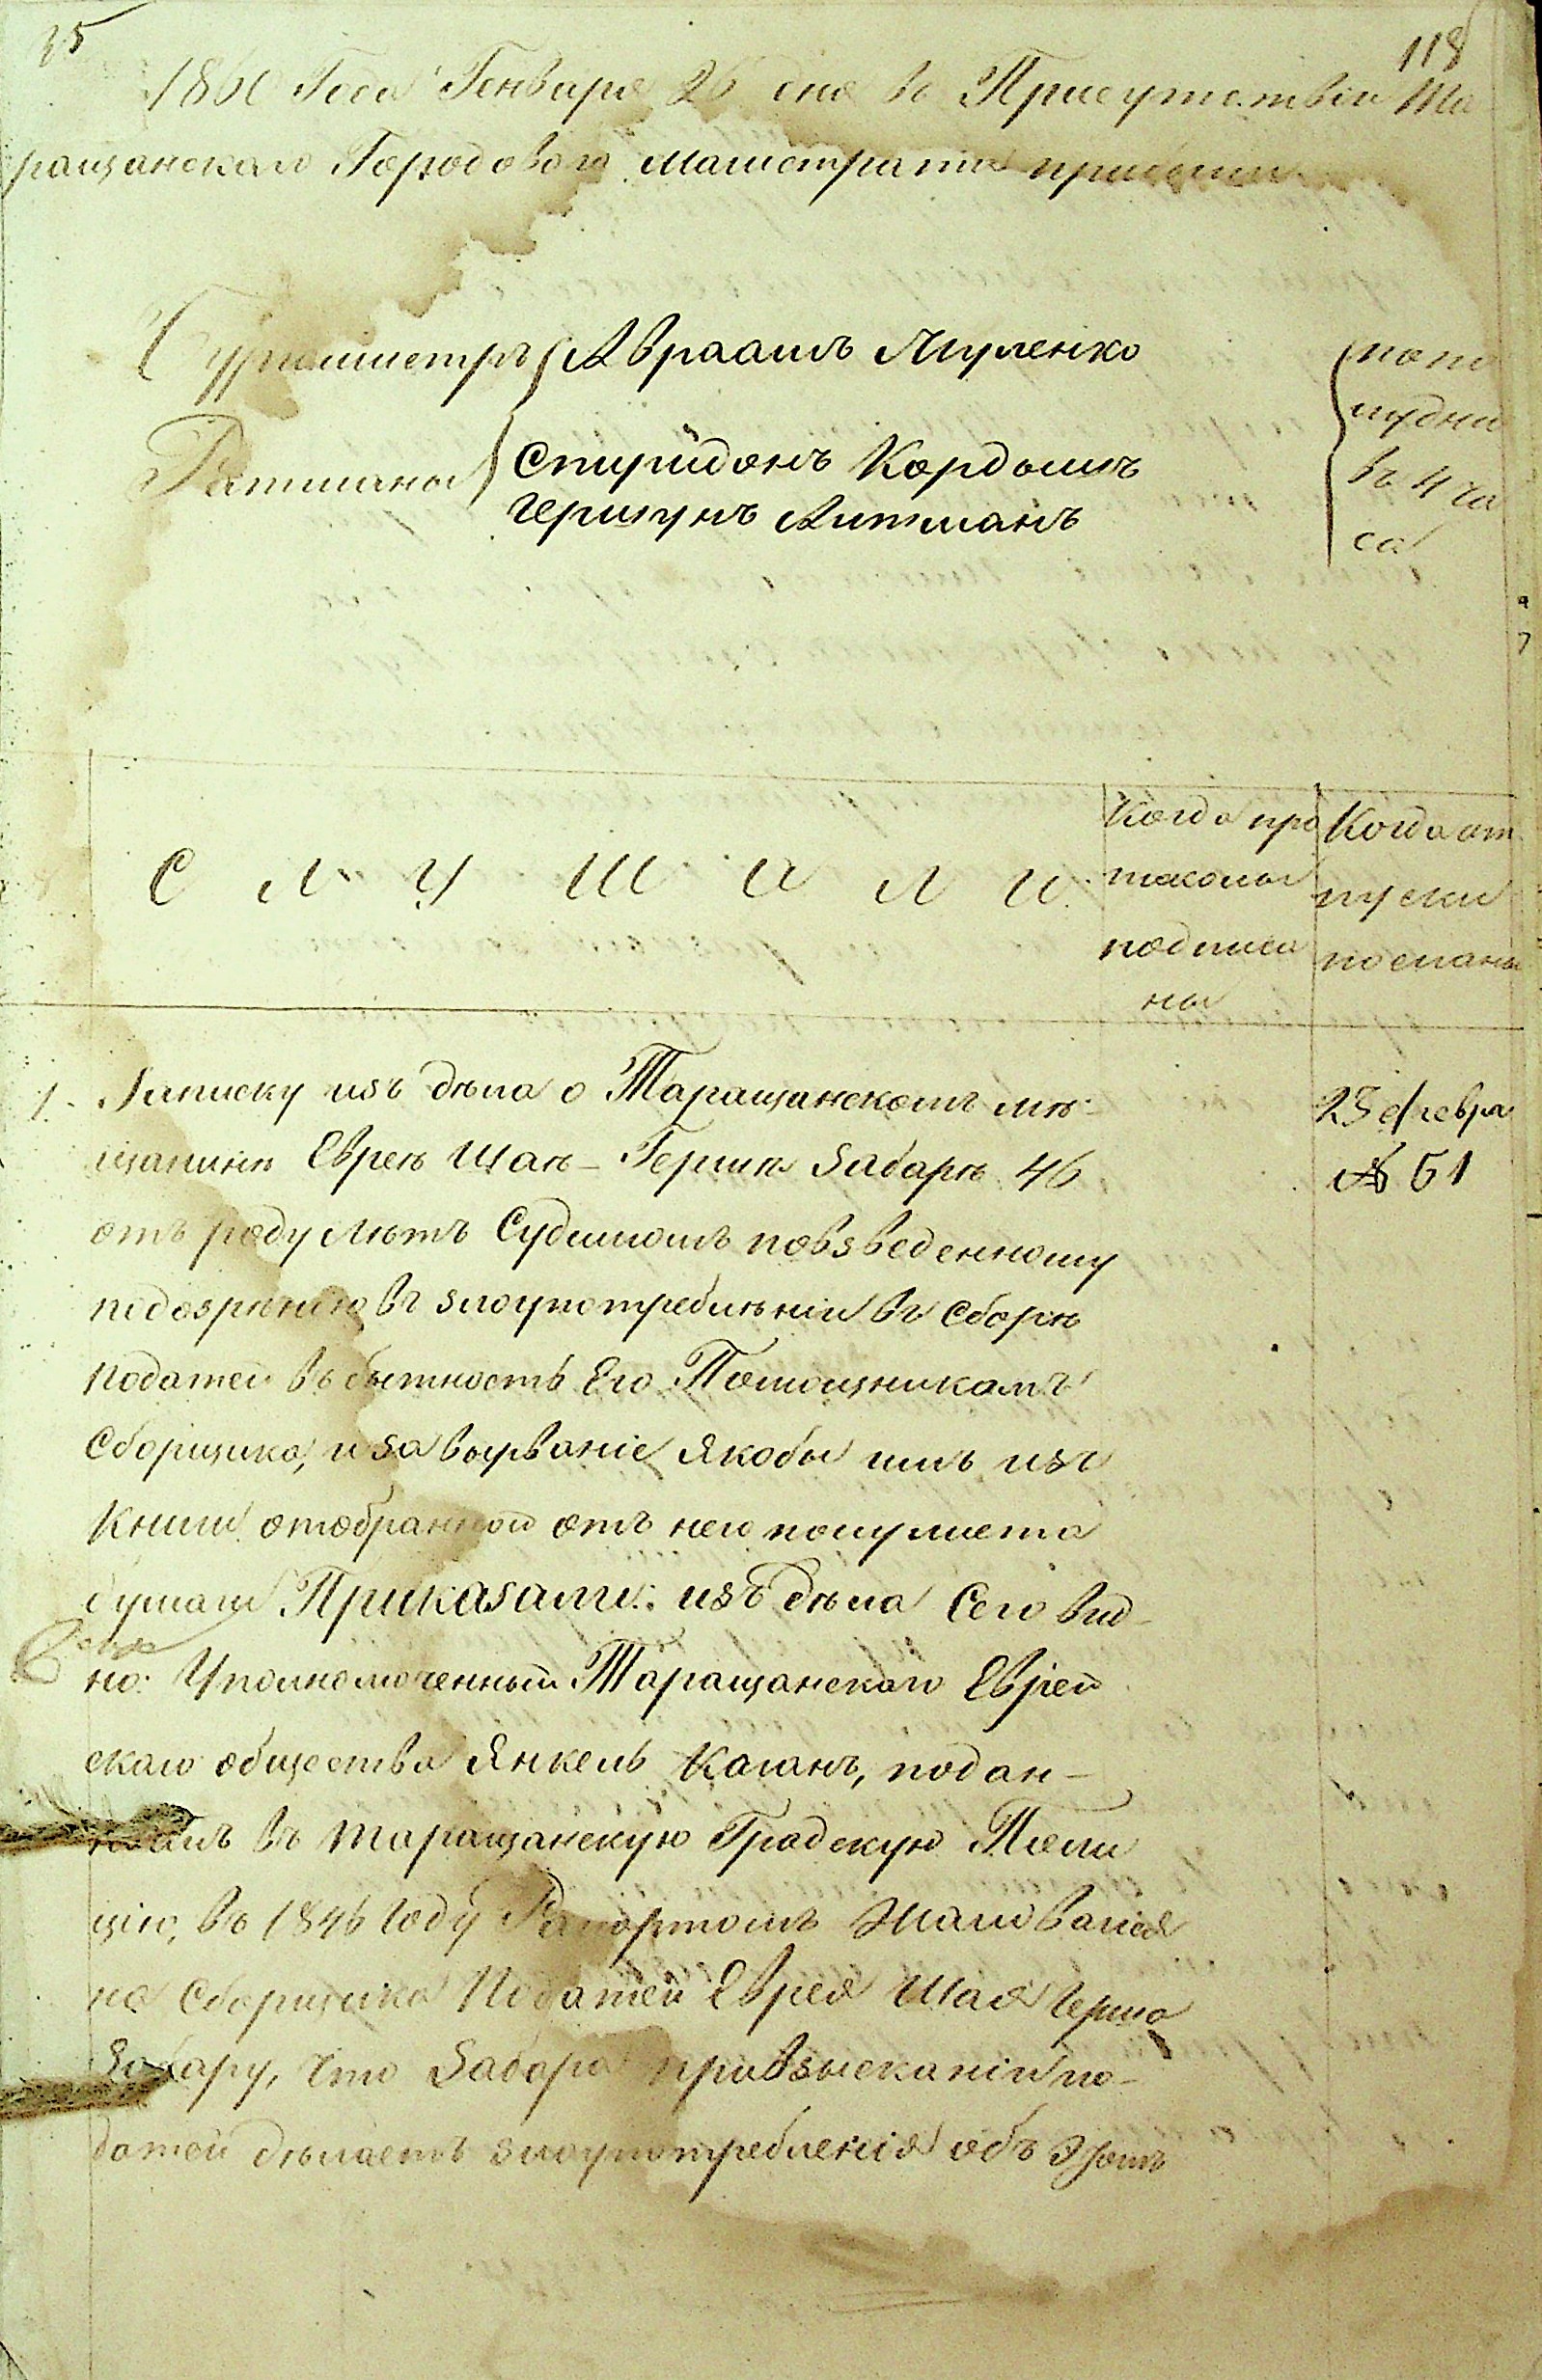 35
118
1861 Года Генваря 26 дня въ Присутствіи Та
ращанскаго Городоваго Магистрата прибыли
Бургомистръ Авраамъ Луценко
Ратманы Спиридонъ Кордышъ
Гершунъ Литманъ
по по
лудни
въ 4 ча
са
С Л У Ш А Л И
Когда про
токолы
подписа
ны
Когда от
пуски
посланы
1. Записку изъ дѣла о Таращанскомъ мѣ-
щанинѣ Евреѣ Шаѣ-Гершкѣ Забарѣ 46
отъ роду лѣтъ Судимомъ повзведенному
подозрѣнію въ злоупотребленіи въ сборѣ
податей въ бытность Его Помощникамъ
Сборщика, и за вырваніе якобы имъ изъ
Книги отобранной отъ него полулиста
бумаги Приказали: изъ дѣла Сего вид-
но: Уполномоченный Таращанскаго Еврей
скаго общества Янкель Каганъ, подан-
нымъ въ Таращанскую Градскую Поли
цію, въ 1846 году Рапортомъ Жаловался
на Сборщика Податей Еврея Шая Герша
Забару, что Забара при взысканіи по-
датей дѣлаетъ злоупотребленія объ этомъ
23 февра
№ 51